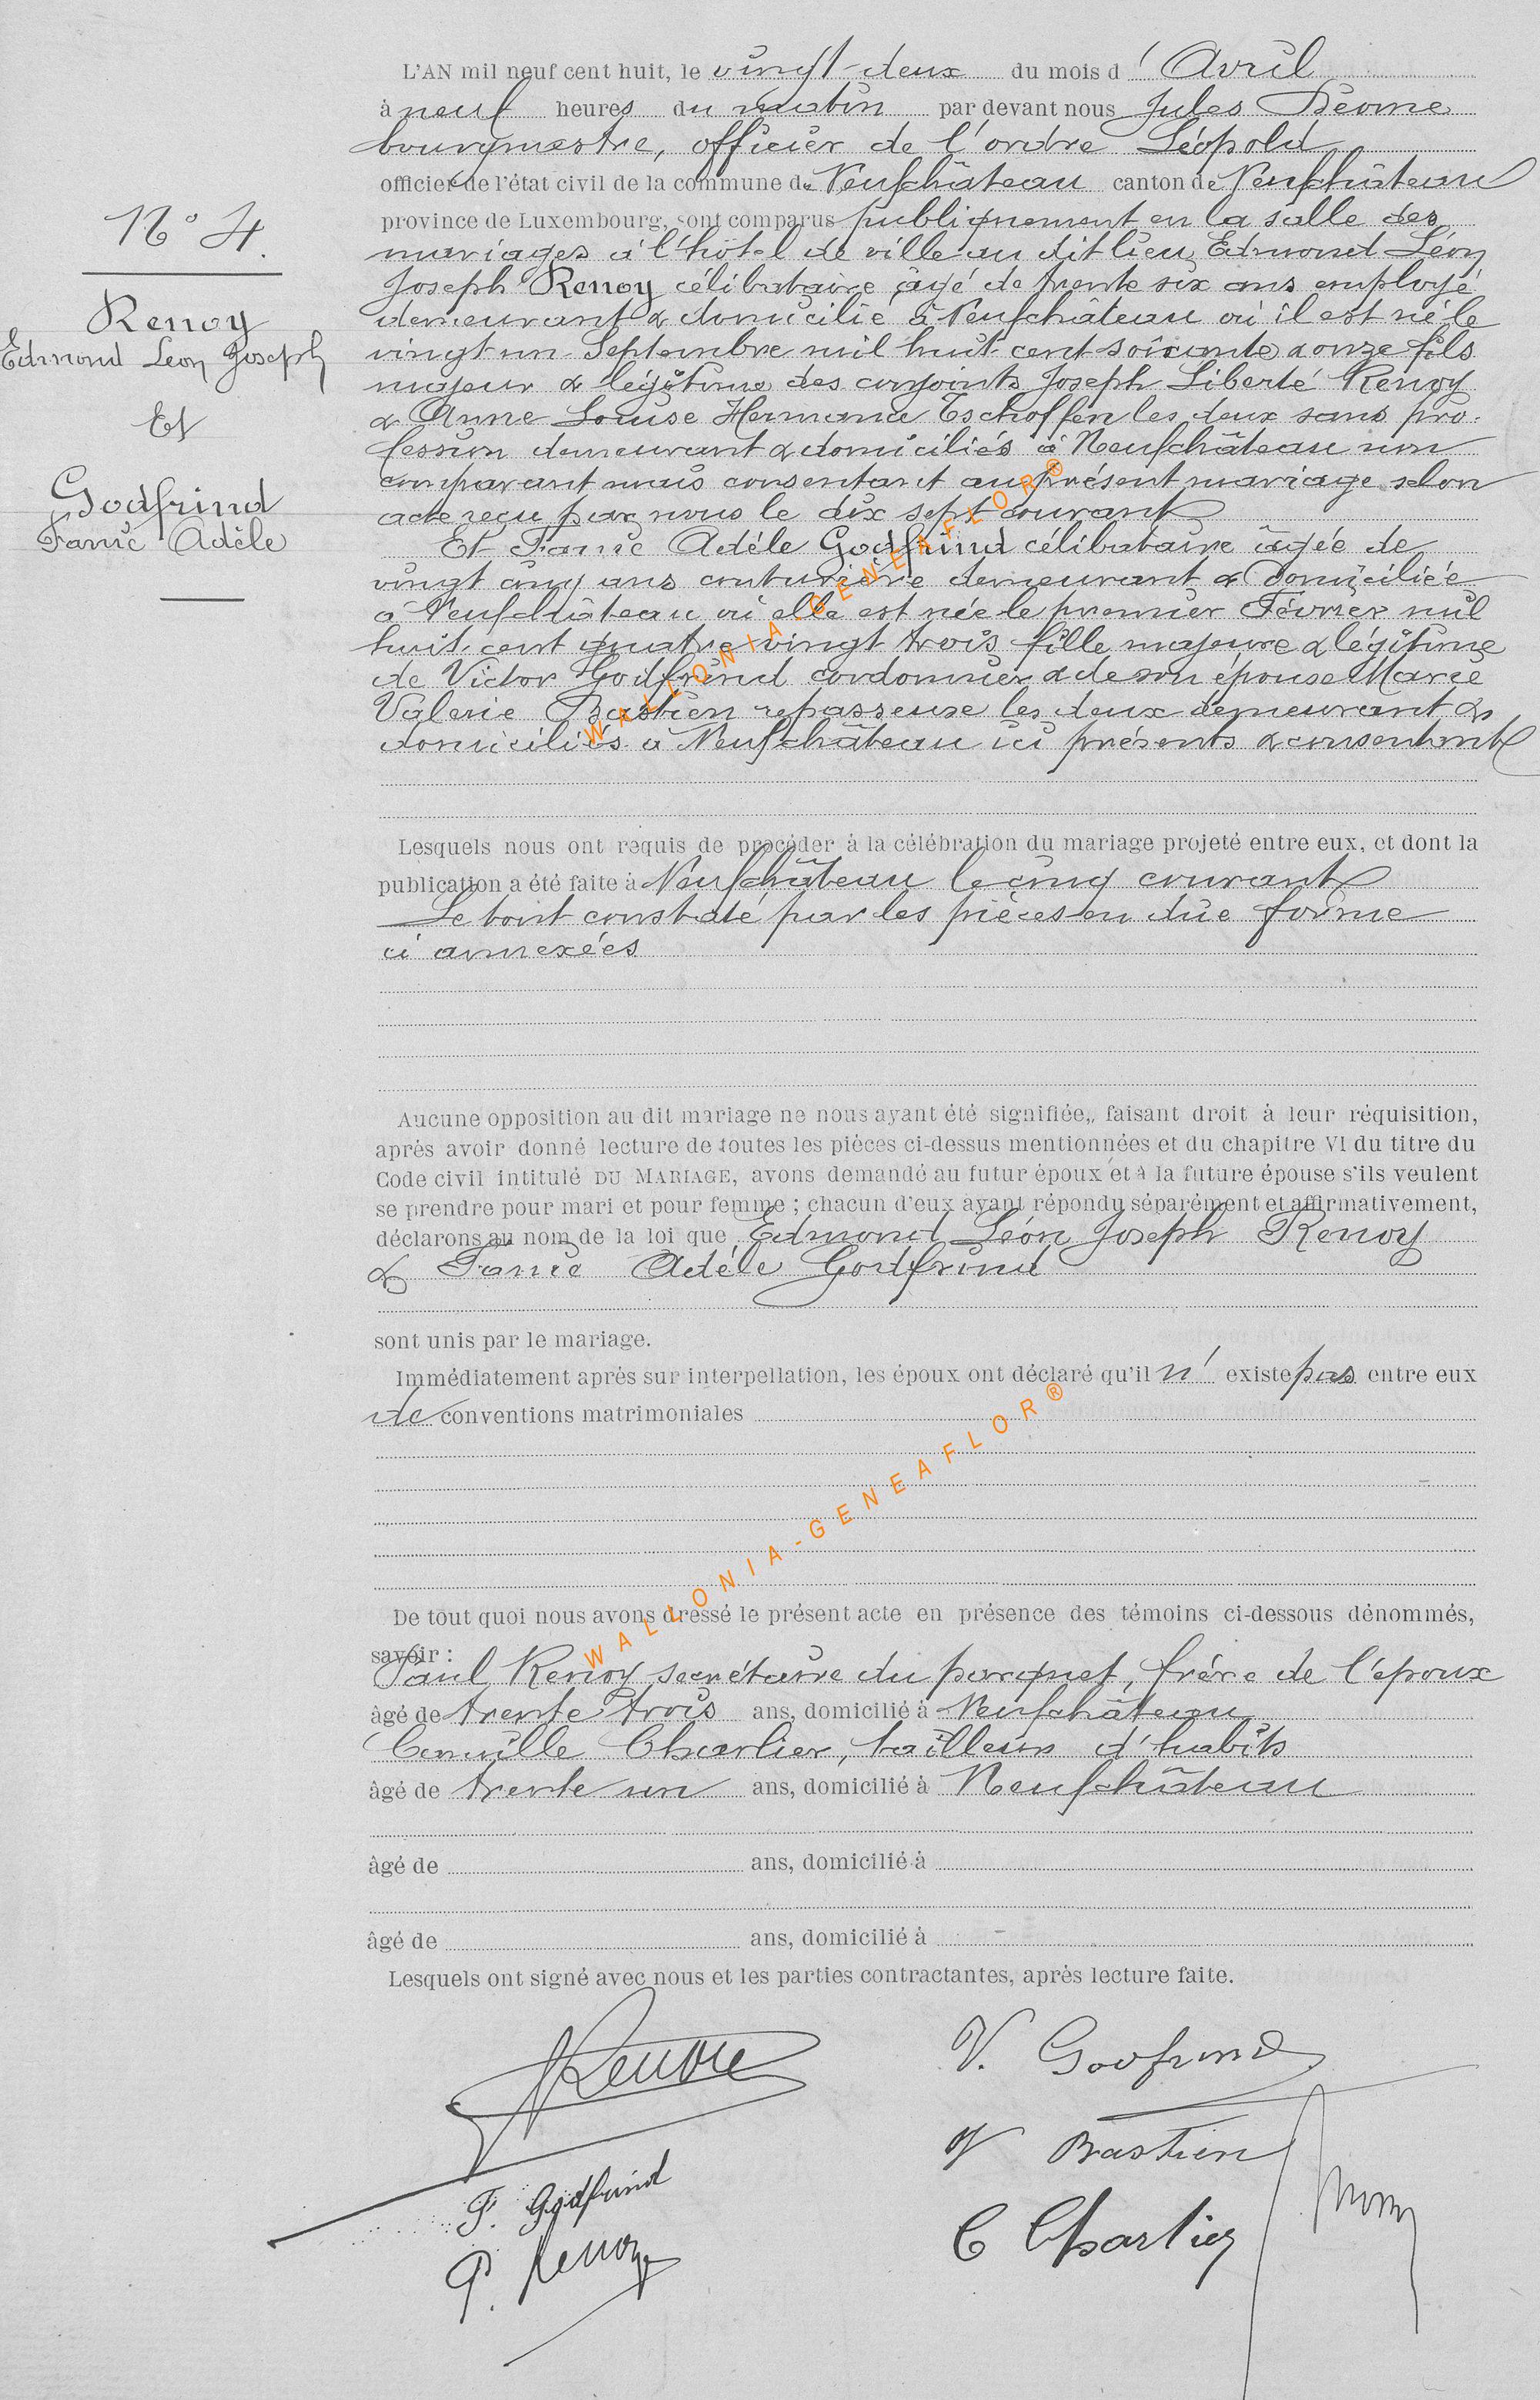 L'AN mil neuf cent huit, le vingt-deux du mois d'Avril
à neuf heures du matin par devant nous Jules
bourgmestre, officier de l'ordre Léopold
officier de l'état civil de la commune de Neufchâteau canton de Neufchâteau
province de Luxembourg, sont comparus publiquement en la salle des
mariages à l'hôtel de ville au dit lieu, Edmond Léon
Joseph Renoy célibataire âgé de trente six ans employé
demeurant & domicilié à Neufchâteau où il est né le
vingt un Septembre mil huit cent soixante & onze fils
majeur & légitime des conjoints Joseph Liberté Renoy
& Anne Louise Hermance Tschoffen les deux sans pro-
fession demeurant & domiciliés à Neufchâteau non
comparant mais consentant au présent mariage selon
acte reçu par nous le dix sept courant
Et Fanie Adèle Godfrind célibataire âgée de
vingt cinq ans couturière demeurant & domiciliée
à Neufchâteau où elle est née le premier Février mil
huit cent quatre vingt trois fille majeure & légitime
de Victor Godfrind cordonnier & de son épouse Marie
Valerie Bastien repasseuse les deux demeurant &
domiciliés à Neufchâteau ici présents & consentant
N° 4.
Renoy
Edmond Léon Joseph
Et
Godfrind
Fanie Adèle
Lesquels nous ont requis de procéder à la célébration du mariage projeté entre eux, et dont la
publication a été faite à Neufchâteau le cinq courant
Le tout constaté par les pièces en due forme
ci annexées
Aucune opposition au dit mariage ne nous ayant été signifiée, faisant droit à leur réquisition,
après avoir donné lecture de toutes les pièces ci-dessus mentionnées et du chapitre VI du titre du
Code civil intitulé DU MARIAGE, avons demandé au futur époux et à la future épouse s'ils veulent
se prendre pour mari et pour femme ; chacun d'eux ayant répondu séparément et affirmativement,
déclarons au nom de la loi que Edmond Léon Joseph Renoy
& Fanie Adèle Godfrind
sont unis par le mariage.
Immédiatement après sur interpellation, les époux ont déclaré qu'il n'existe pas entre eux
de conventions matrimoniales
De tout quoi nous avons dressé le présent acte en présence des témoins ci-dessous dénommés,
savoir :
Paul Renoy secrétaire du parquet, frère de l'époux
âgé de trente trois ans, domicilié à Neufchâteau
Camille Charlier, tailleur d'habits
âgé de trente un ans, domicilié à Neufchâteau
âgé de ans, domicilié à
âgé de ans, domicilié à
Lesquels ont signé avec nous et les parties contractantes, après lecture faite.
V. Godfrind
V Bastien
F. Godfrind
P. Renoy
C Charlier
WALLONIA-GENEAFLOR®
WALLONIA-GENEAFLOR®